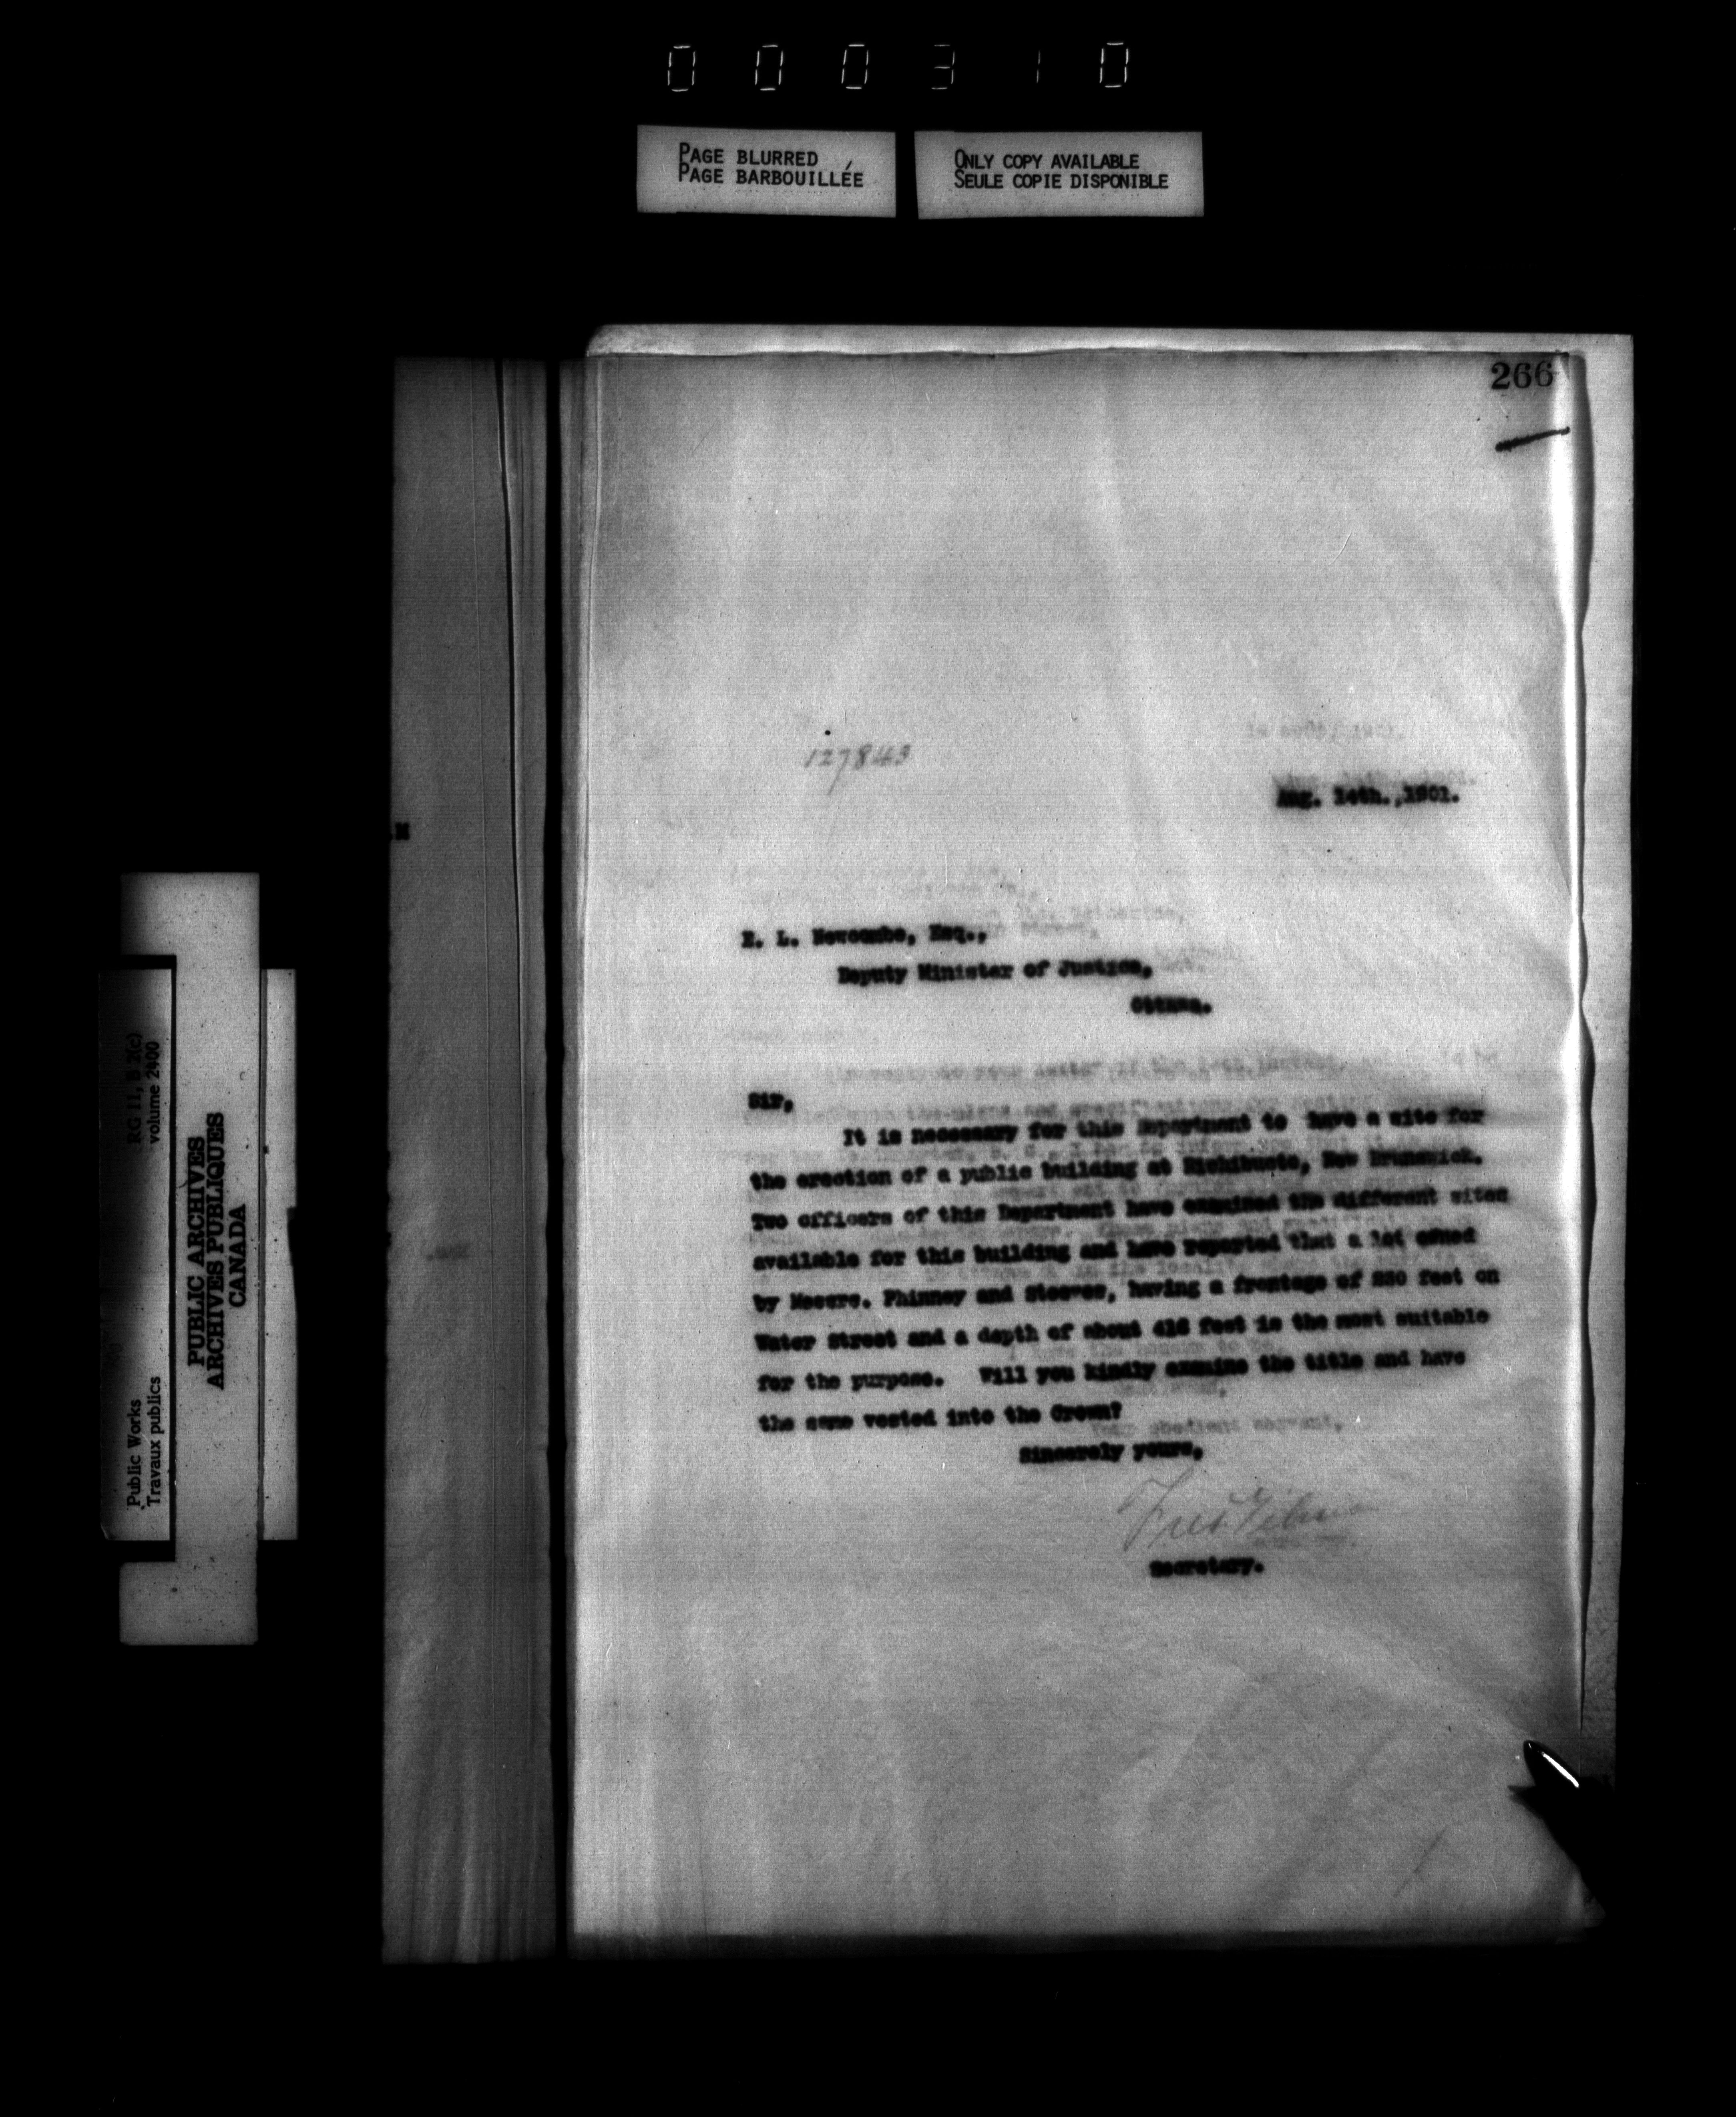 000310
PAGE BLURRED
PAGE BARBOUILLÉE
ONLY COPY AVAILABLE
SEULE COPIE DISPONIBLE
266
127843
Aug. 14th.,1901.
E. L. Newcombe, Esq.,
Deputy Minister of Justice,
Ottawa.
Sir,
It is necessary for this Department to have a site for
the erection of a public building at Richibucto, New Brunswick.
Two officers of this Department have examined the different sites
available for this building and have reported that a lot owned
by Messrs. Phinney and Steeves, having a frontage of feet on
Water Street and a depth of about feet is the most suitable
for the purpose. Will you kindly examine the title and have
the same vested into the Crown?
Sincerely yours,
Secretary.
RG 11, B 2(c)
volume 2400
Public Works
Travaux publics
PUBLIC ARCHIVES
ARCHIVES PUBLIQUES
CANADA